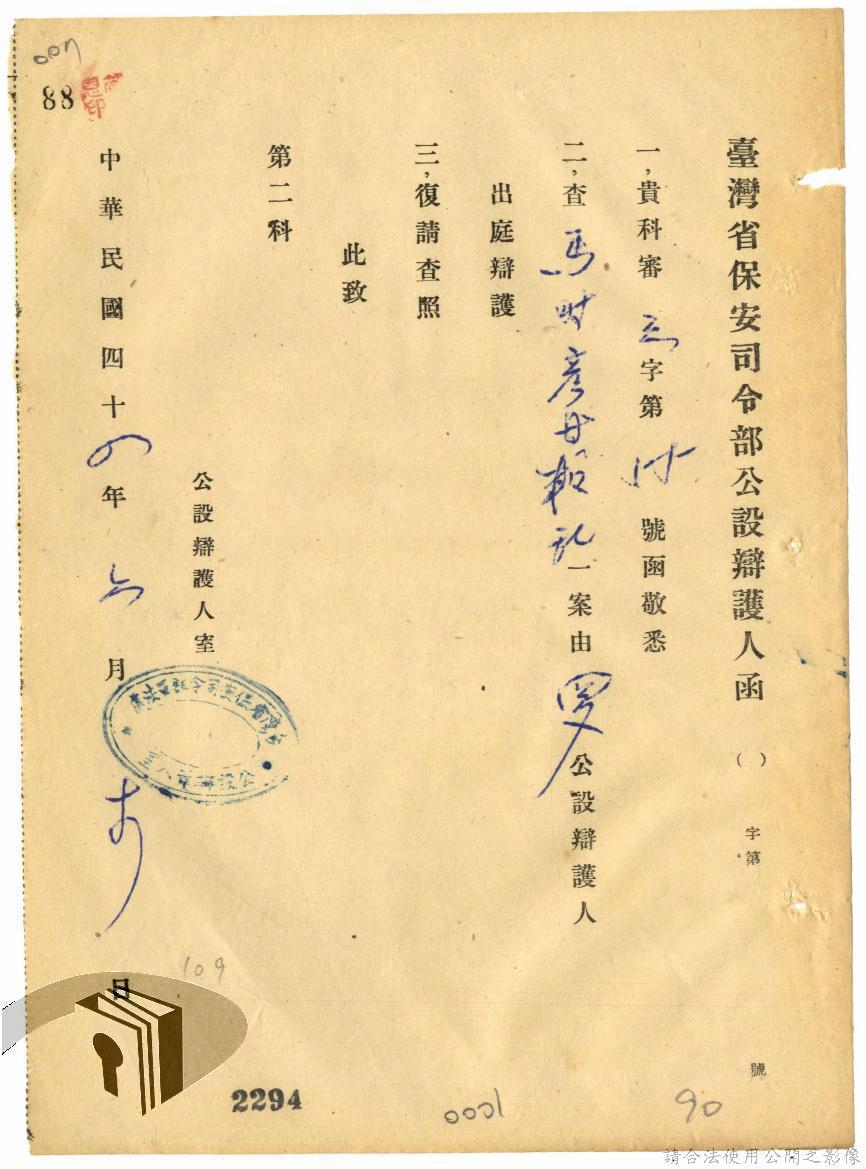 007
88
臺灣省保安司令部公設辯護人函 ( ) 字第 號
一,貴科審 字第 號函敬悉
二,查馬時彥 叛亂一案由羅公設辯護人
出庭辯護
三,復請查照
此致
第二科
公設辯護人室
中華民國四十四年六月 日
109
2294
0001
90
請合法使用公開之影像